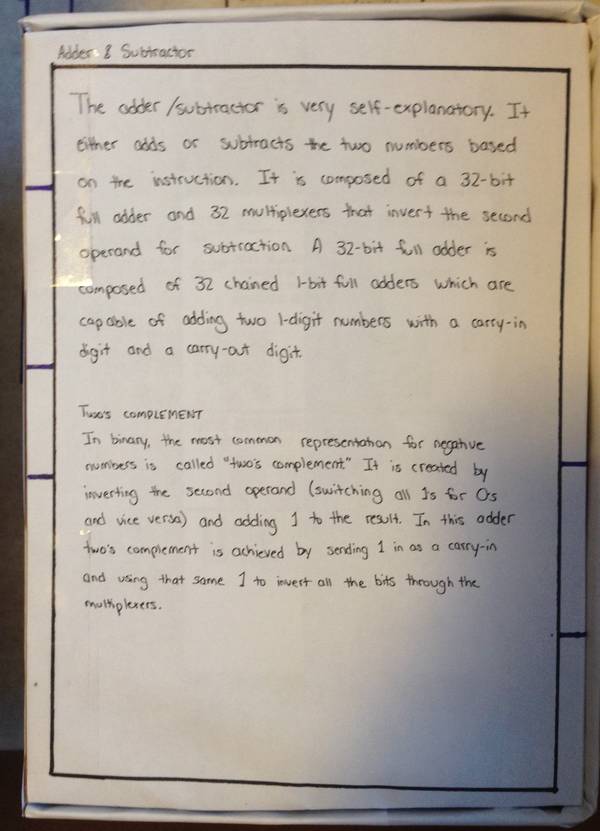 Adder & Subtractor
The adder/subtractor is very self-explanatory. It
either adds or subtracts the two numbers based
on the instruction. It is composed of a 32-bit
full adder and 32 multiplexers that invert the second
operand for subtraction. A 32-bit full adder is
composed of 32 chained 1-bit full adders which are
capable of adding two 1-digit numbers with a carry-in
digit and a carry-out digit.
TWO'S COMPLEMENT
In binary, the most common representation for negative
numbers is called "two's complement." It is created by
inverting the second operand (switching all 1s for 0s
and vice versa) and adding 1 to the result. In this adder
two's complement is achieved by sending 1 in as a carry-in
and using that same 1 to invert all the bits through the
multiplexers.